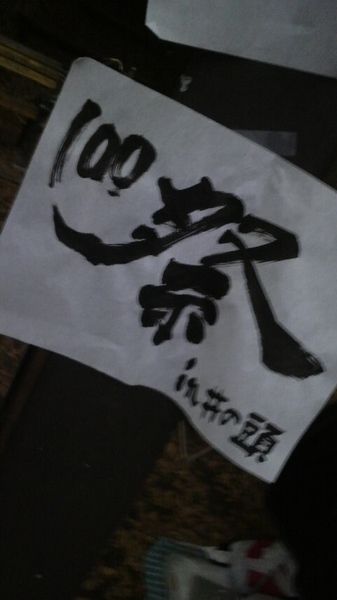 100祭
in井の頭